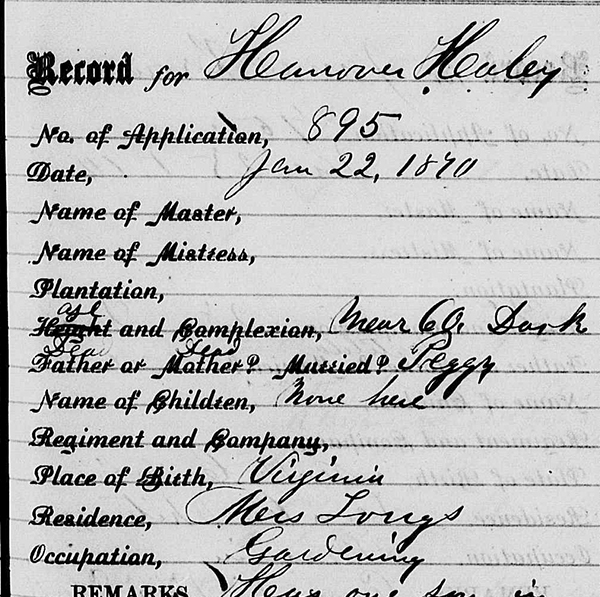 Record for Hanover Haley
No. of Application, 895
Date, Jan 22, 1870
Name of Master,
Name of Mistress,
Plantation,
age
Height and Complexion, Near 60. Dark
Dead Dead
Father or Mother? Married? Peggy
Name of Children, None here
Regiment and Company,
Place of Birth, Virginia
Residence, Mrs Longs
Occupation, Gardening
REMARKS Has one son in